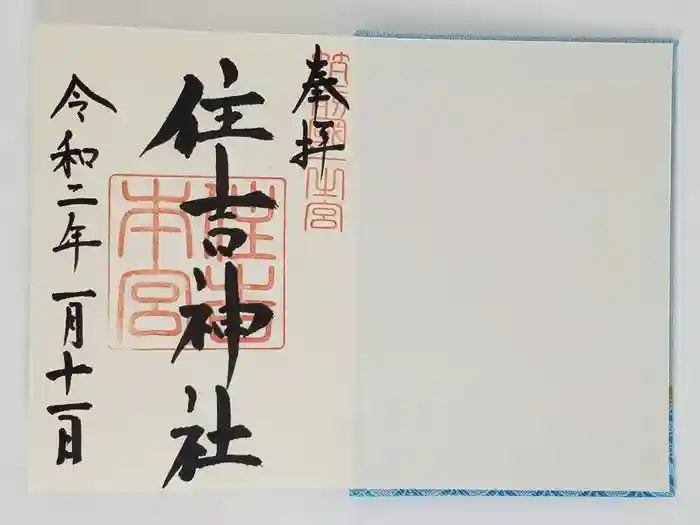 奉拝
筑前國一之宮
住吉神社
住吉
本宮
令和二年一月十一日